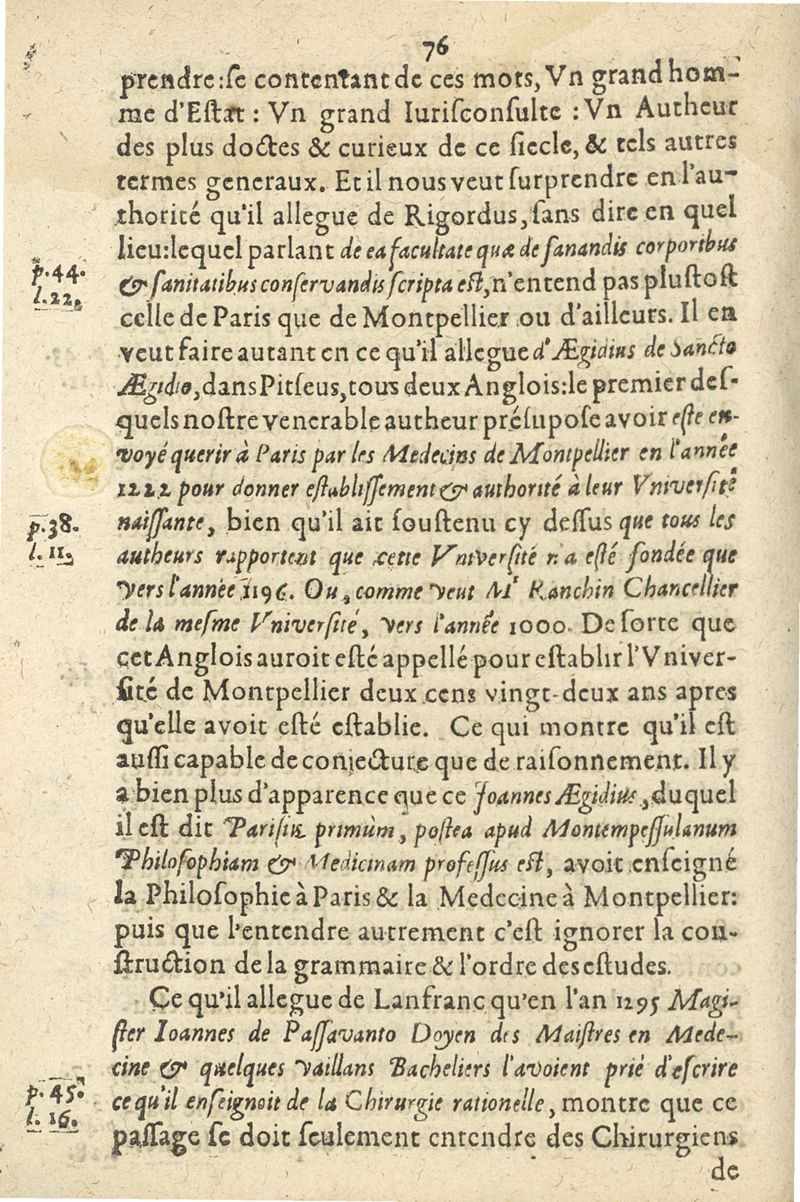 76
prendre:ſe contentant de ces mots, Vn grand hom-
me d'Eſtat : Vn grand Iuriſconſulte : Vn Autheur
des plus doctes & curieux de ce ſiecle, & tels autres
termes generaux. Et il nous veut ſurprendre en l'au-
thorité qu'il allegue de Rigordus, ſans dire en quel
lieu:lequel parlant de ea facultate quæ de ſanandis corporibus
p.44. & ſanitatibus conſervandis ſcripta eſt, n'entend pas pluſtoſt
l.22. celle de Paris que de Montpellier ou d'ailleurs. Il en
veut faire autant en ce qu'il allegue d'Ægidius de Sancto
Ægidio, dans Pitſeus, tous deux Anglois:le premier deſ-
quels noſtre venerable autheur préſupoſe avoir eſte en-
voyé querir à Paris par les Medecins de Montpellier en l'année
1222 pour donner eſtabliſſement & authorité à leur Vniverſité
p.38. naiſſante, bien qu'il ait ſouſtenu cy deſſus que tous les
l.11. autheurs rapportent que cette Vniverſité n'a eſté fondée que
vers l'année 1196. Ou, comme veut Mr Ranchin Chancellier
de la meſme Vniverſité, vers l'année 1000. De ſorte que
cet Anglois auroit eſté appellé pour eſtablir l'Vniver-
ſité de Montpellier deux cens vingt-deux ans apres
qu'elle avoit eſté eſtablie. Ce qui montre qu'il eſt
auſſi capable de coniecture que de raiſonnement. Il y
a bien plus d'apparence que ce Joannes Ægidius, duquel
il eſt dit Pariſiis primùm, poſtea apud Montempeſſulanum
Philoſophiam & Medicinam profeſſus eſt, avoit enſeigné
la Philoſophie à Paris & la Medecine à Montpellier:
puis que l'entendre autrement c'eſt ignorer la con-
ſtruction de la grammaire & l'ordre des eſtudes.
Ce qu'il allegue de Lanfranc qu'en l'an 1295 Magi-
ſter Ioannes de Paſſavanto Doyen des Maiſtres en Mede-
cine & quelques vaillans Bacheliers l'avoient prié d'eſcrire
p.45. ce qu'il enſeignoit de la Chirurgie rationelle, montre que ce
l.16. paſſage ſe doit ſeulement entendre des Chirurgiens
de